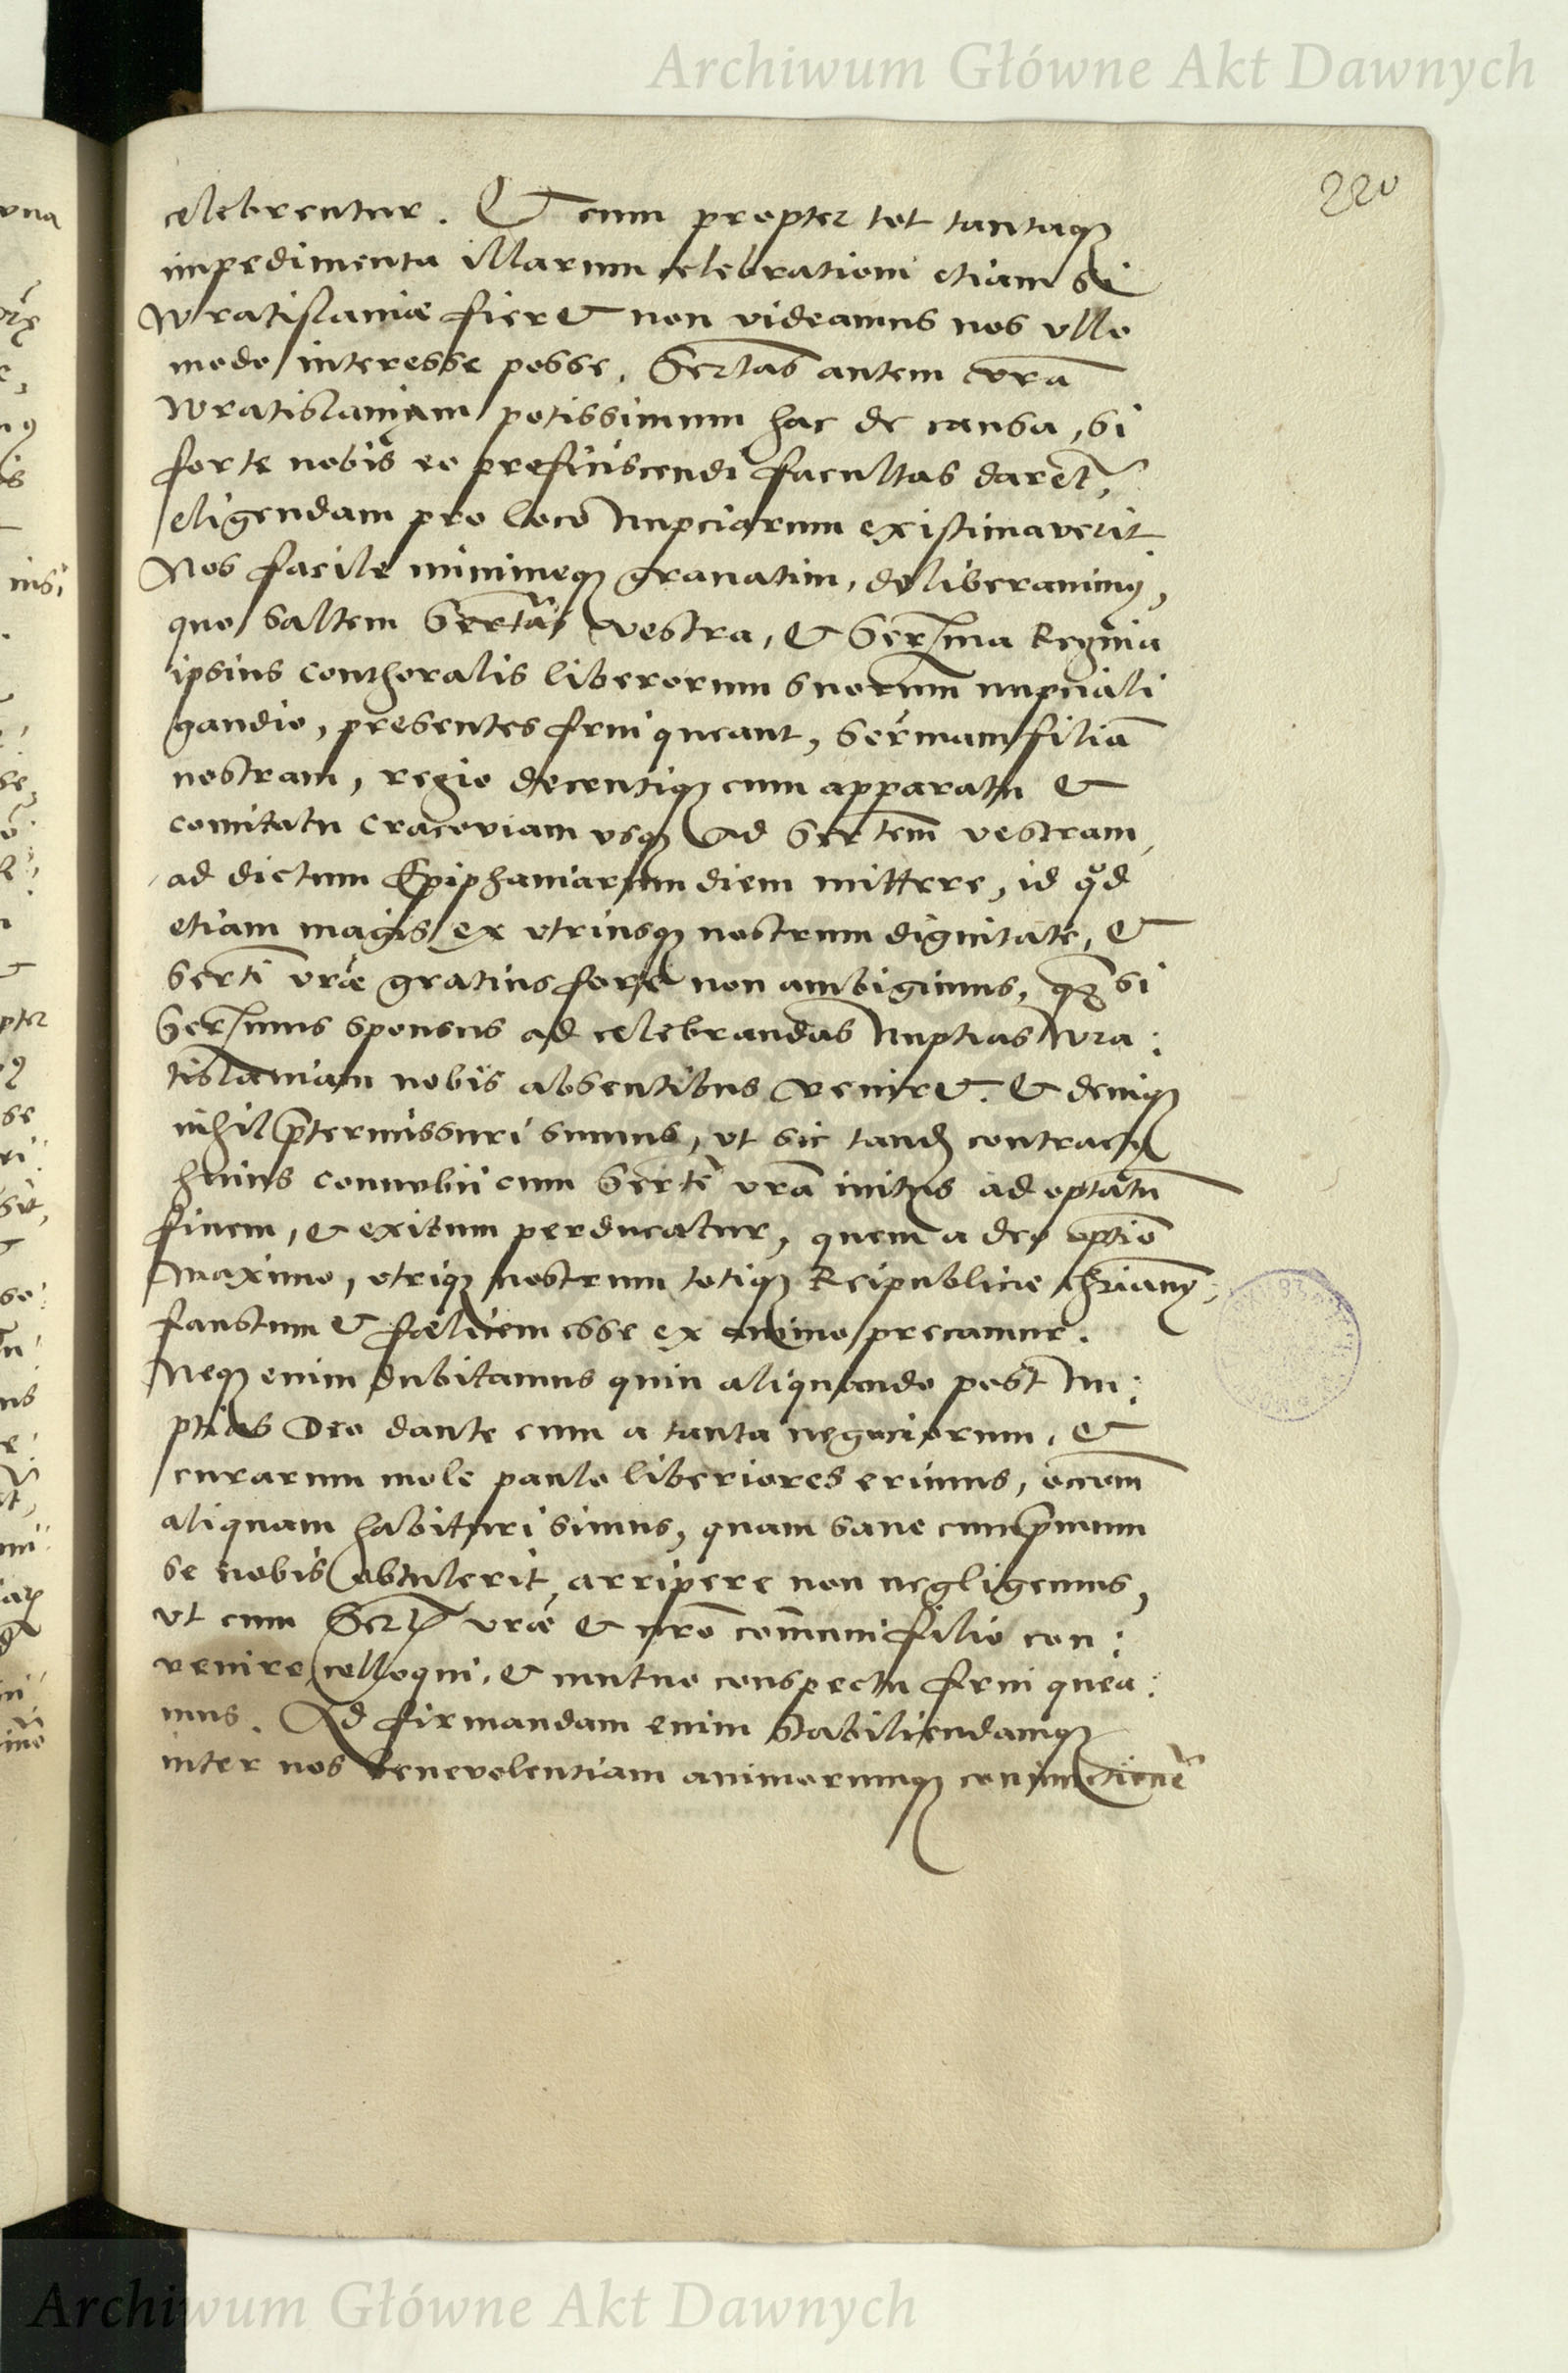 Archiwum Główne Akt Dawnych
220
celebrentur. Et cum propter tot tantaq
impedimenta illarum celebrationi etiam si
Wratislaviae fieret non videamus nos ullo
modo interesse posse, Sertas autem vra
Wratislaviam potissimum hac de causa, si
forte nobis eo proficiscendi facultas daret,
eligendam pro loco Nupciarum existimaverit
Nos facile minimeq gravatim, deliberavimus,
quo saltem Sertas vestra, et Serma Regina
ipsius conthoralis liberorum suorum nupciali
gaudio, presentes frui queant, Sermam filia
nostram, regio decentiq cum apparatu et
comitatu Cracoviam usq ad Sertem vestram,
ad dictum Epiphaniarum diem mittere, id qd
etiam magis ex utriusq nostrum dignitate, et
Serti vrae gratius fore non ambigimus, q si
Sermus sponsus ad celebrandas Nuptias Wra:
tislaviam nobis absentibus veniret. et deniq
nihil ptermissuri sumus, ut sic tand contractus
huius connubii cum Serte vra initus ad optatu
finem, et exitum perducatur, quem a deo optio
Maximo, utriq nostrum totiq Reipublice chrianae,
faustum et foelicem esse ex animo precamur.
Neq enim dubitamus quin aliquando post Nu:
ptias Deo dante cum a tanta negociorum, et
curarum mole paulo liberiores erimus, occom
aliquam habituri simus, quam sane cum pmum
se nobis obtulerit arripere non negligemus,
ut cum Serte vrae et nro communi filio con:
venire colloqui, et mutuo conspectu frui quea:
mus. Ad firmandam enim stabiliendamq
inter nos benevolentiam animorumq coniunctione
Archiwum Główne Akt Dawnych